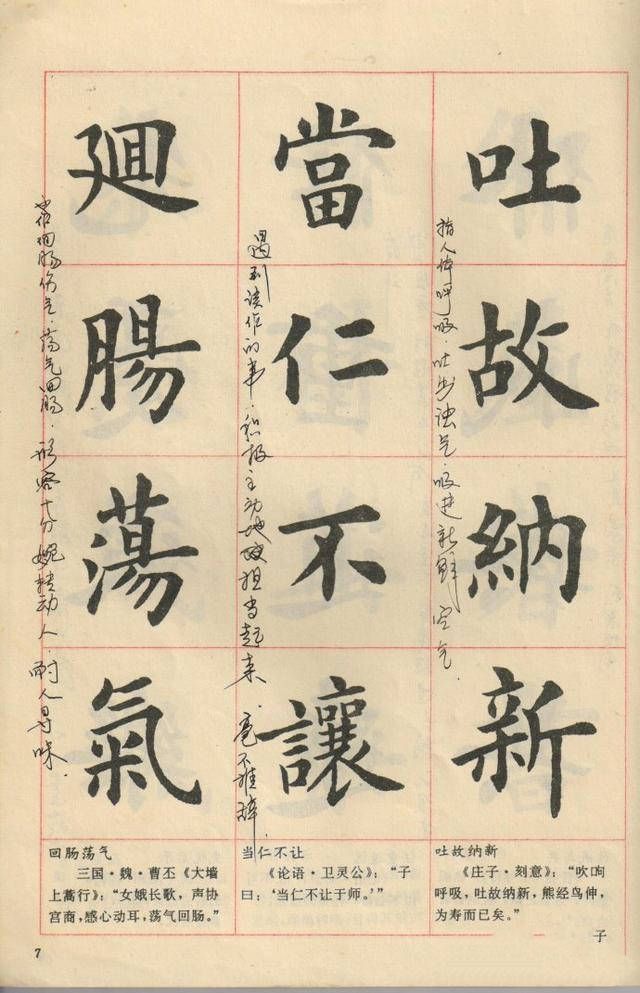 吐故納新
指人体呼吸．吐出浊气．吸进新鲜空气．
當仁不讓
遇到该作的事．积极主动地承担当起来．毫不推辞．
廻腸蕩氣
回肠伤气．荡气回肠．形容十分婉转动人．耐人寻味．
吐故纳新
《庄子·刻意》：“吹呴
呼吸，吐故纳新，熊经鸟伸，
为寿而已矣。”
当仁不让
《论语·卫灵公》：“子
曰：‘当仁不让于师。’”
回肠荡气
三国·魏·曹丕《大墙
上蒿行》：“女娥长歌，声协
宫商，感心动耳，荡气回肠。”
子
7